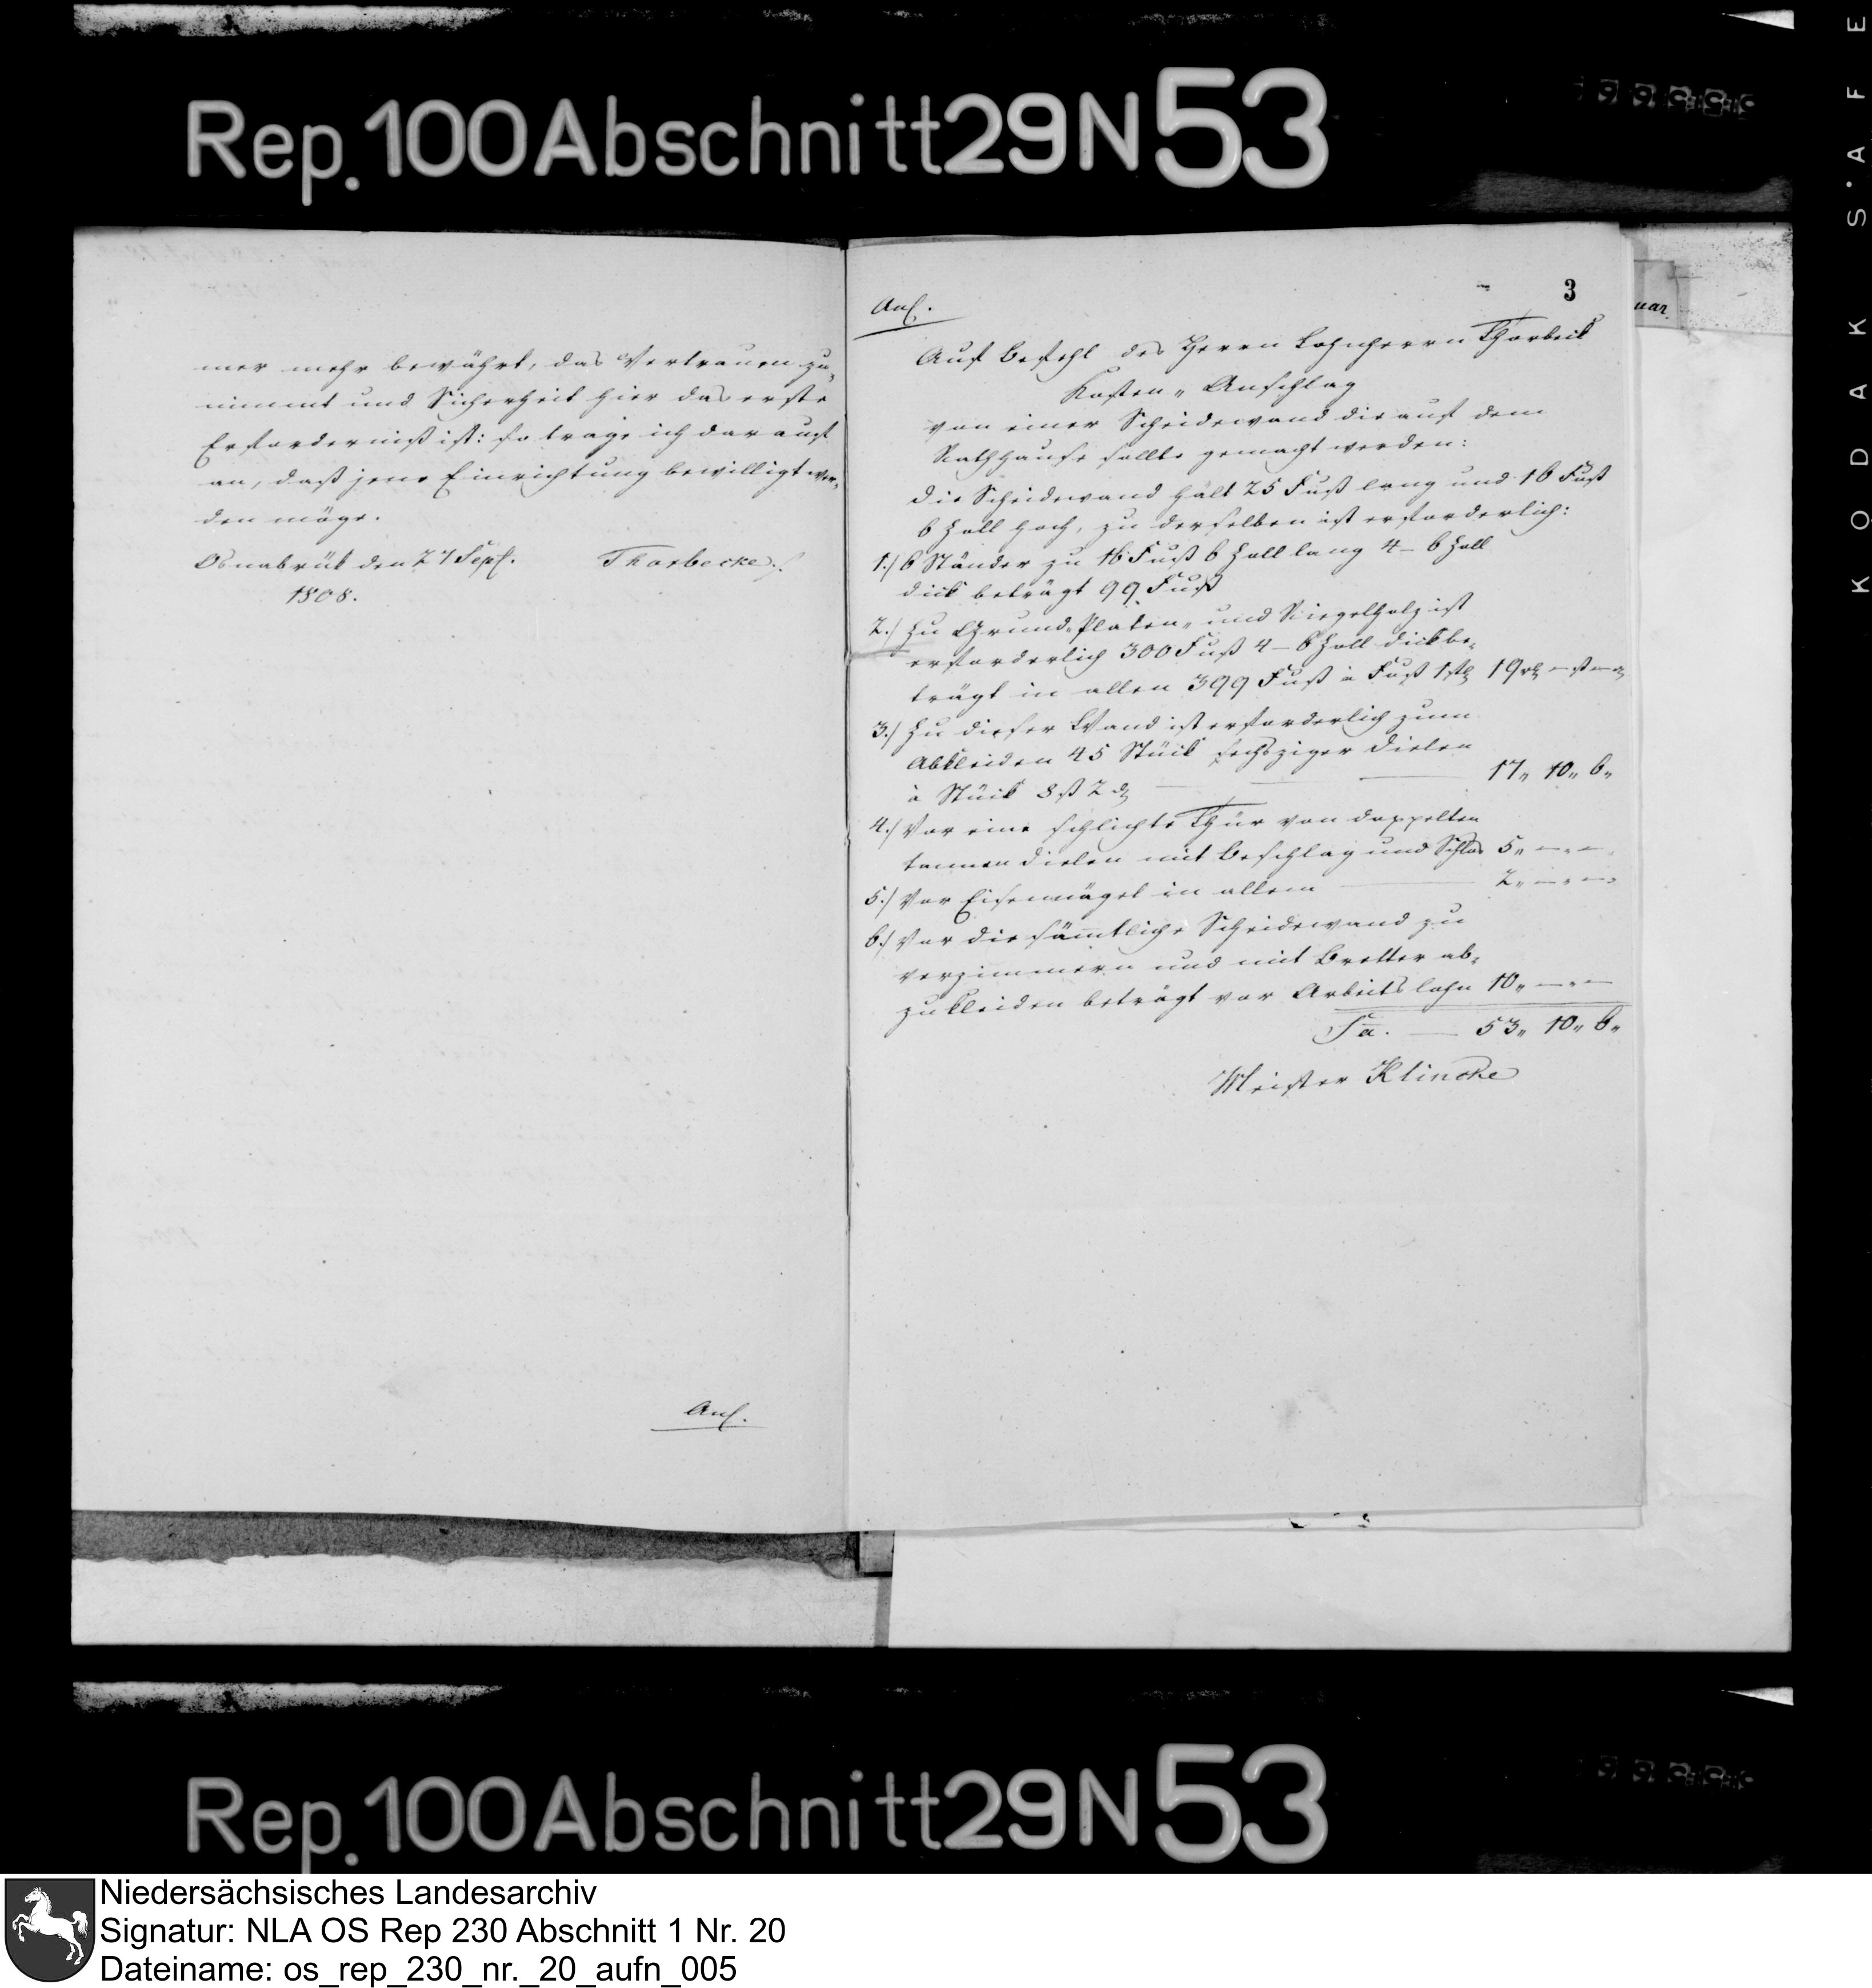 Rep. 100 Abschnitt 29 N 53
KODAK S'AFE
mer mehr bewährt, das Vertrauen zu-
nimmt und Sicherheit hier das erste
Erforderniß ist: so trage ich darauf
an, daß jene Einrichtung bewilligt wer-
den möge.
Osnabrük den 27 Sept. Thorbecke.
1808.
Anl.
3
Anl.
uar.
Auf Befehl des Herrn Lohnherrn Thorbeck
Kosten-Anschlag
von einer Scheidewand die auf dem
Rathhause sollte gemacht werden:
Die Scheidewand hält 25 Fuß lang und 16 Fuß
6 Zoll hoch, zu derselben ist erforderlich:
1.) 6 Ständer zu 16 Fuß 6 Zoll lang 4–6 Zoll
dick beträgt 99 Fuß
2.) Zu Grund-Platen- und Riegelholz ist
erforderlich 300 Fuß 4–6 Zoll dick be-
trägt in allen 399 Fuß à Fuß 1 ßl 19 rl — ß — d
3.) Zu dieser Wand ist erforderlich zum
Abkleiden 45 Stück sechsziger Dielen
à Stück 8 ß 2 d — — 17„ 10„ 6„
4.) Vor eine schlichte Thür von doppelten
tannen Dielen mit Beschlag und Schlos 5„ —„ —
5.) Vor Eisennägel in allem — 2„ —„ —
6.) Vor die sämtliche Scheidewand zu
verzimmern und mit Bretter ab-
zukleiden beträgt vor Arbeitslohn 10„ —„ —
Sa. — 53„ 10„ 6„
Meister Klincke
Rep. 100 Abschnitt 29 N 53
Niedersächsisches Landesarchiv
Signatur: NLA OS Rep 230 Abschnitt 1 Nr. 20
Dateiname: os_rep_230_nr._20_aufn_005